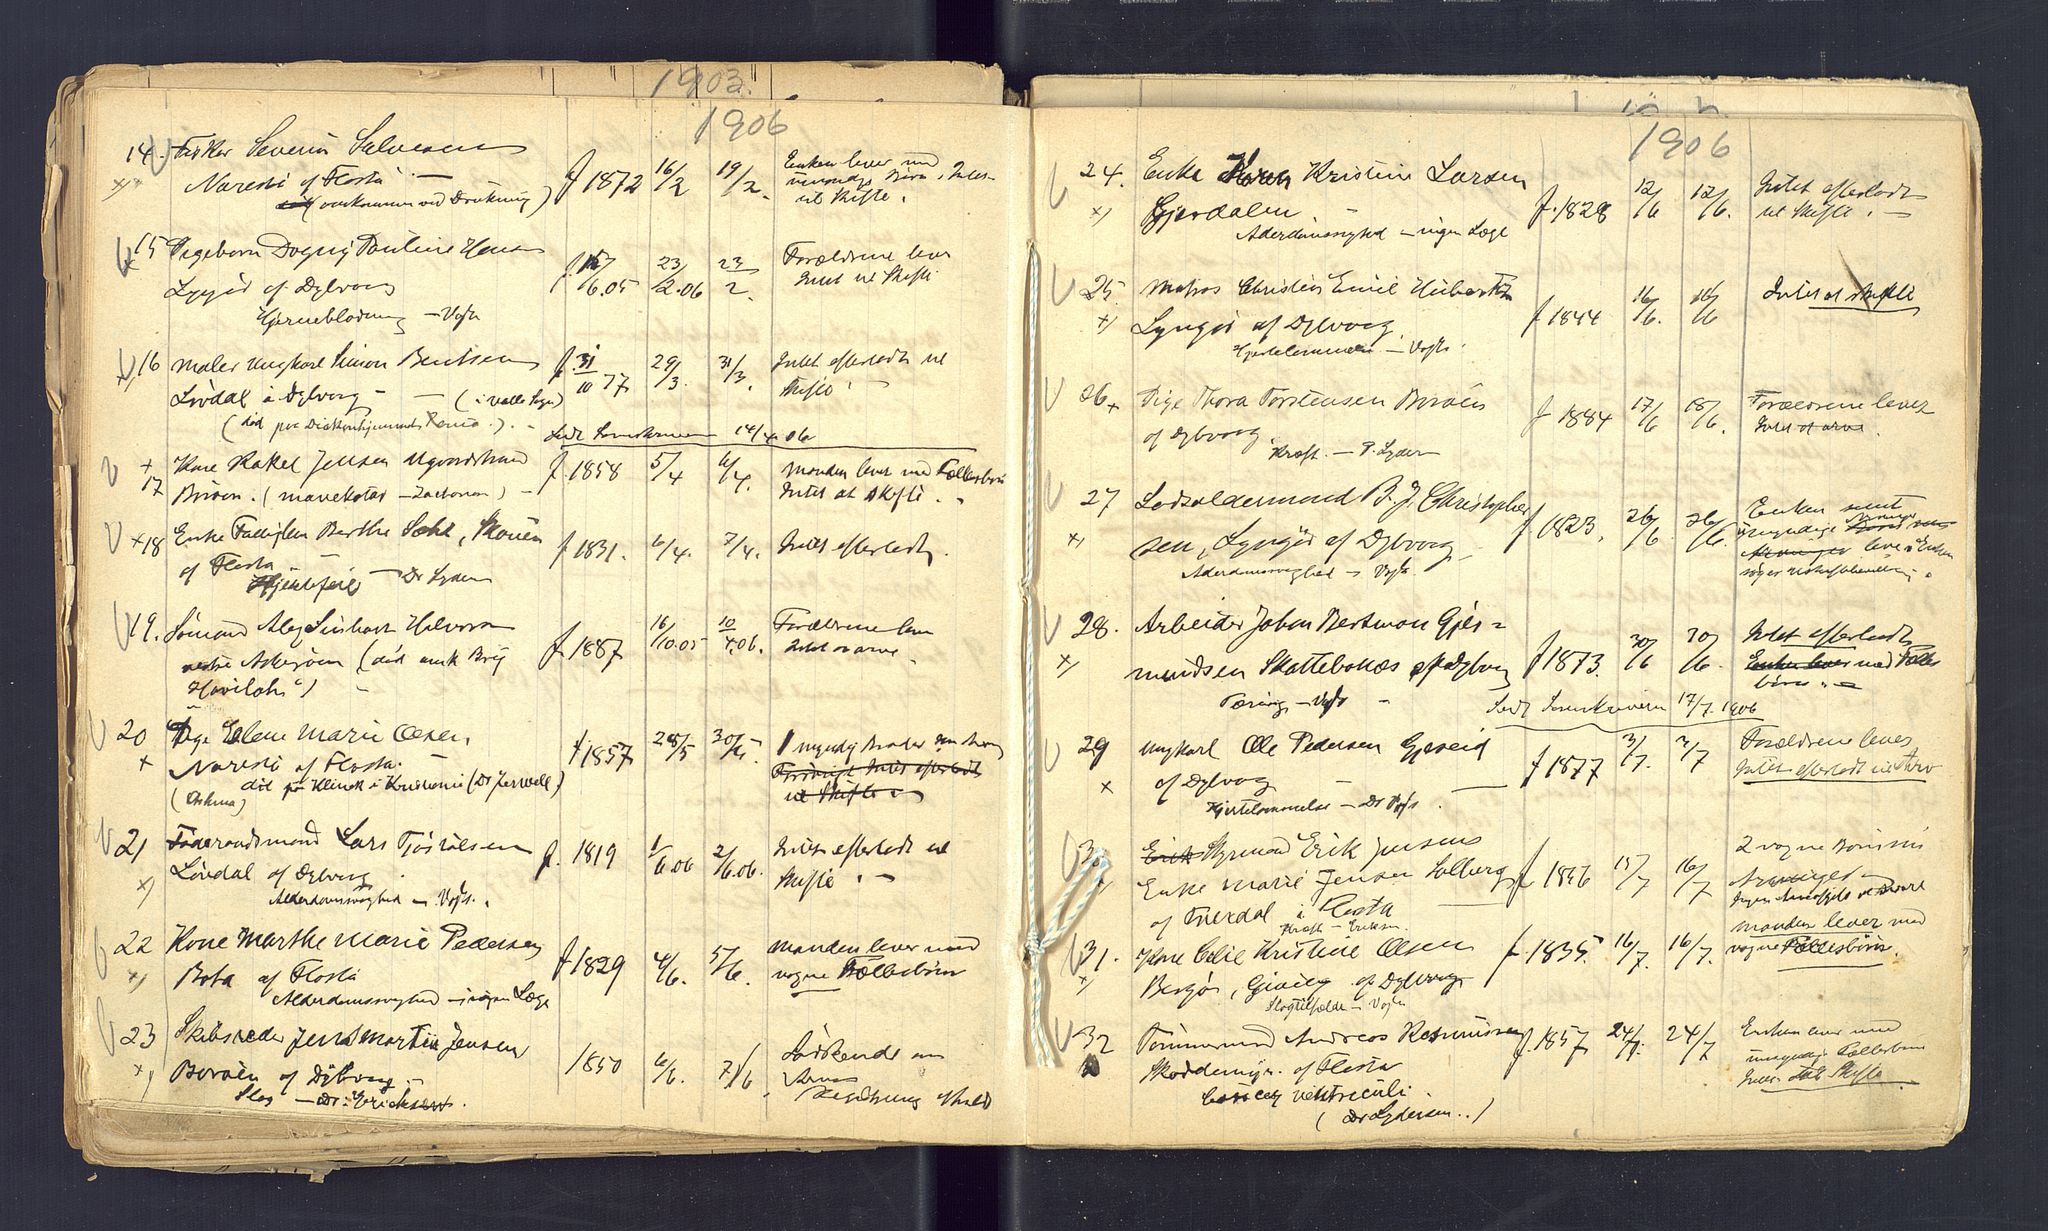 1903.
1906
14. Fisker Severin Salvesen
Narestø af Flosta
(omkommen ved Drukning)
f 1872 16/2 19/2.
Enken lever med
umyndige Børn. Intet
til Skifte.
15 Pigebarn Dagny Pauline
Lyngør af Dybvaag
Hjerneblødning – Vogt
6.05 23/2.06 23/2.
Forældrene lever
Intet til Skifte
16 Maler Ungkarl Simon Bentsen
Løvdal i Dybvaag – (i Valle Sogn)
(død paa Diakonhjemmet)
f. 31/10 77 29/3. 31/3.
Intet efterladt til
Skifte
Sendt Sorenskriveren 14/4 06
17 Kone Rakel Jensen
Borøen. (mavekatar – Zachariasen)
f. 1858 5/4 6/4.
Manden lever med Fællesbørn
Intet at skifte.
18 Enke Fattiglem Berthe, Skouen
af Flosta
Hjertefeil – Dr Lydersen
f 1831. 6/4. 7/4.
Intet efterladt.
19. Sømand Halvorsen
Askerøen (død ombord Brig
"Havilah")
f. 1887 16/10.05 10/4.06.
Forældrene lever
Intet at arve
20 Pige Elene Marie Olsen,
Narestø af Flosta.
død på Klinik i Kristiania (Dr Jervell)
(Astma)
f. 1857 28/5 30/5
1 myndig Broder
Intet efterladt
til Skifte
21 Føderaadsmand Lars Tjøstolsen
Løvdal af Dybvaag
Alderdomssvaghed – Vogt.
f. 1819 1/6.06 2/6.06.
Intet efterladt til
Skifte.
22 Kone Marthe Marie Pedersen
Bota af Flosta
Alderdomssvaghed – ingen Læge
f 1829 4/6. 5/6.
Manden lever med
voxne Fællesbørn
23 Skibsreder Jens Martin Jensen
Borøen af Dybvaag –
Slag – Dr. Ericksen.
1850 6/6. 7/6
Sødskende
Arve
1906
24. Enke Karen Kristine Larsen
Gjerdalen –
Alderdomssvaghed – ingen Læge
f. 1828 12/6 12/6.
Intet efterladt
til Skifte. –
25. Matros Christen Emil Hubert
Lyngør af Dybvaag.
Hjertelammelse – Vogt.
f 1844 16/6. 16/6
Intet at skifte
26. Pige Thora Torstensen Borøen
af Dybvaag
Kræft. – P. Lydersen
f 1884 17/6 18/6.
Forældrene lever
Intet at arve.
27 Lodsoldermand B. J. Christopher
sen, Lyngør af Dybvaag –
Alderdomssvaghed – Vogt.
f. 1823. 26/6 26/6.
Enken samt
umyndige
lever. Enken
søger
28. Arbeider Johan Bertman Gjer=
mundsen Skottebonæs af Dybvaag
Tæring – Vogt
f 1873. 30/6 30/6.
Intet efterladt
Enken lever med Fælles
børn. –
Sendt Sorenskriveren 17/7 1906
29 Ungkarl Ole Pedersen Gjeveid
af Dybvaag
Hjertelammelse – Dr Vogt.
f 1877 3/7. 3/7
Forældrene lever
Intet efterladt til Arv
Styrmand Erik Jensens
Enke Marie Jensen Solberg
af Tverdal i Flosta
Kræft – Eriksen
15/7 16/7
2 voxne Børn
31. Kone Celie Kristine Olsen
Bergø, Gjeving af Dybvaag
Slagtilfælde – Vogt
f. 1835. 16/7. 16/7.
Manden lever med
voxne Fællesbørn.
32 Tømmermand Andreas Rasmussen
Skoddemyr. af Flosta
Cancer ventriculi
(Dr Lydersen..)
f. 1857 24/7. 24/7
Enken lever med
umyndige Fællesbørn
Intet til Skifte